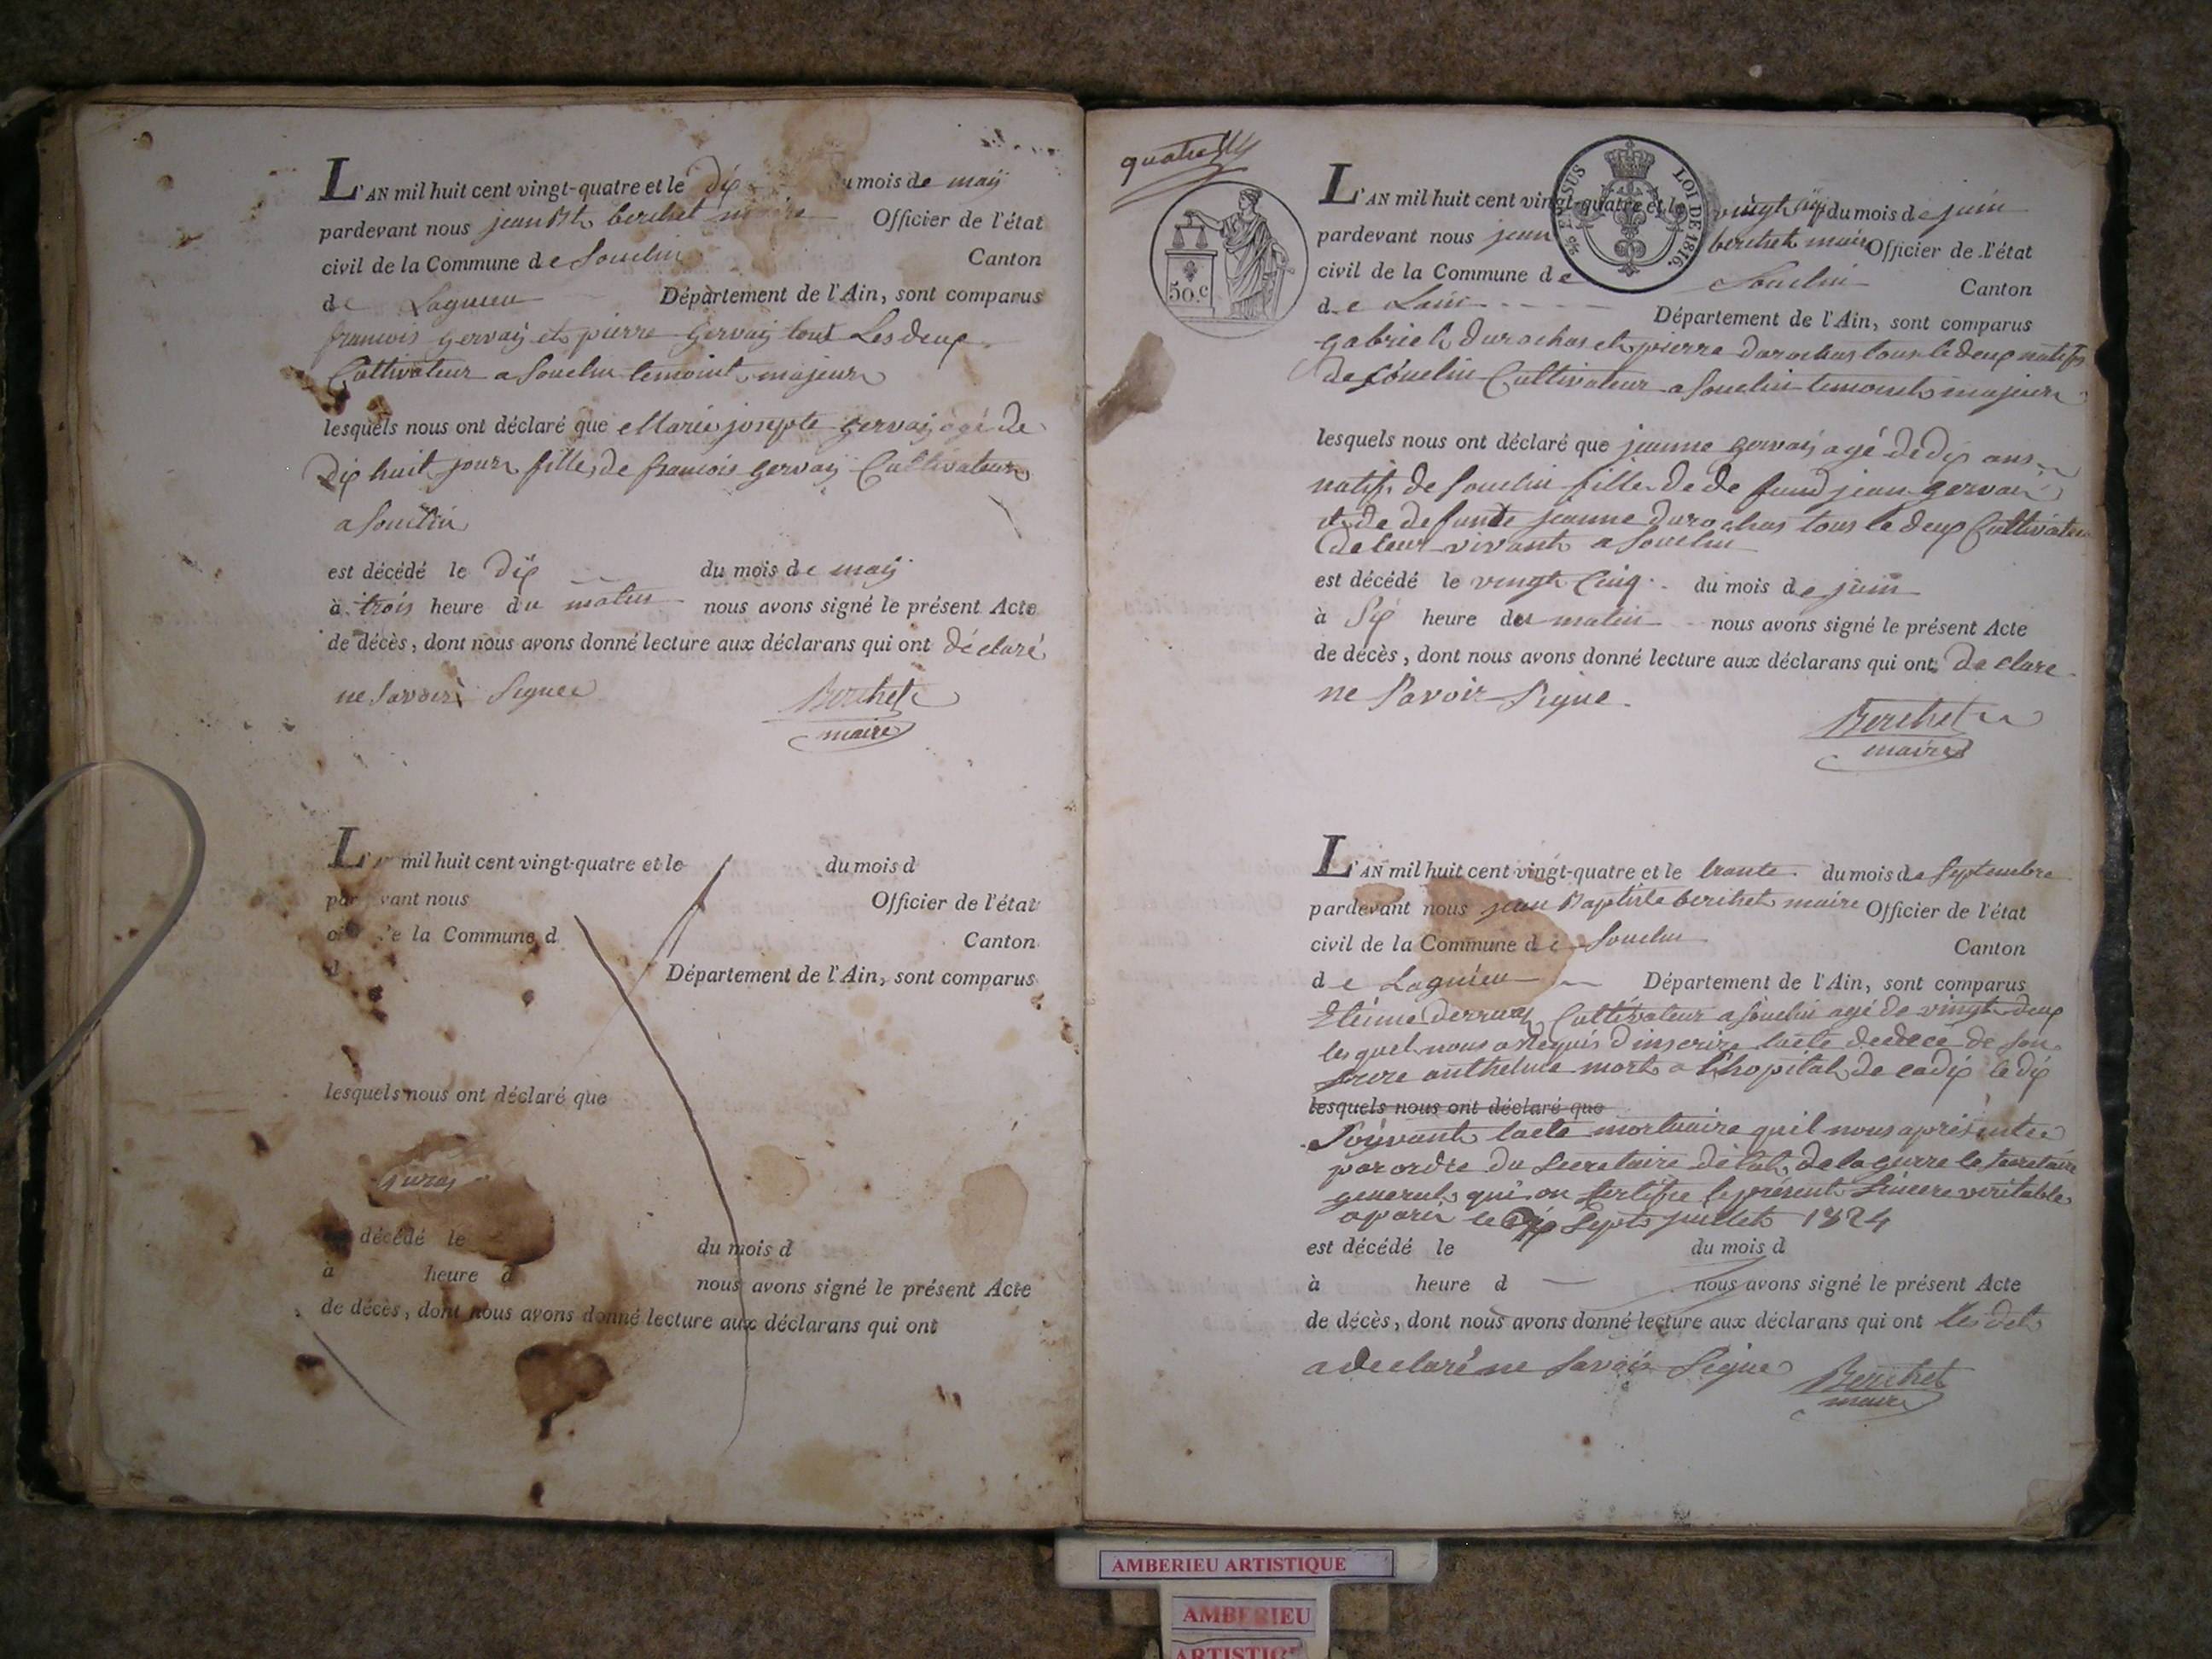 L'AN mil huit cent vingt-quatre et le Dix du mois de maÿ
pardevant nous jean Bte berthet maire Officier de l'état
civil de la Commune de Souclin Canton
de Lagnieu Département de l'Ain, sont comparus
francois gervaÿ et pierre Gervaÿ tout Les deux
Cultivateur a Souclin temoint majeur
lesquels nous ont déclaré que Marie josepte gervaÿ agé de
Dix huit jour fille de francois gervaÿ Cultivateur
a Souclin
est décédé le Dix du mois de maÿ
à trois heure du matin nous avons signé le présent Acte
de décès, dont nous avons donné lecture aux déclarans qui ont déclaré
ne Savoir Signee
Berthet
maire
L'AN mil huit cent vingt-quatre et le du mois d
pardevant nous Officier de l'état
de la Commune d Canton
d Département de l'Ain, sont comparus
lesquels nous ont déclaré que
décédé le du mois d
à heure d nous avons signé le présent Acte
de décès, dont nous avons donné lecture aux déclarans qui ont
quatre
EN SUS
LOI DE 1816.
50.c
L'AN mil huit cent vingt-quatre et le vingt du mois de juin
pardevant nous jean berthet maire Officier de l'état
civil de la Commune de Souclin Canton
de Lain Département de l'Ain, sont comparus
gabriel durochas et pierre durochas tous le deux natifs
de Souclin Cultivateur a Souclin temoint majeur
lesquels nous ont déclaré que jeanne gervaÿ agé de dix ans
natif de Souclin fille de de fund jean gervaÿ
et de defunte jeanne durochas tous le deux Cultivateur
de leur vivant a Souclin
est décédé le vingt Cinq du mois de juin
à Six heure du matin nous avons signé le présent Acte
de décès, dont nous avons donné lecture aux déclarans qui ont de clare
ne Savoir Signe
Berthet
maire
L'AN mil huit cent vingt-quatre et le trante du mois de Septembre
pardevant nous jean Baptiste berthet maire Officier de l'état
civil de la Commune de Souclin Canton
de Lagnieu Département de l'Ain, sont comparus
Etienne Cultivateur a Souclin agé de vingt deux
lesquel nous a requis d'inscrire lacte de dece de son
frere anthelme mort a l'hopital de cadix le dix
lesquels nous ont déclaré que
Souvant lacte mortuaire qu'il nous a présentée
par ordre du Secretaire détat de la guerre le Secretaire
general qui on Sertifie le présent Sincere veritable
a paris le dix Sept juillet 1824
est décédé le du mois d
à heure d nous avons signé le présent Acte
de décès, dont nous avons donné lecture aux déclarans qui ont
a declaré ne Savoir Signe
Berthet
maire
AMBERIEU ARTISTIQUE
AMBERIEU